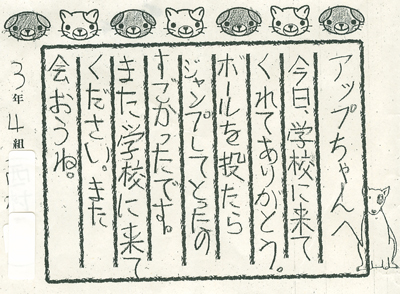 アップちゃんへ
今日、学校に来て
くれてありがとう。
ボールを投たら
ジャンプしてとったの
すごかったです。
また学校に来て
ください。また
会おうね。
3年4組